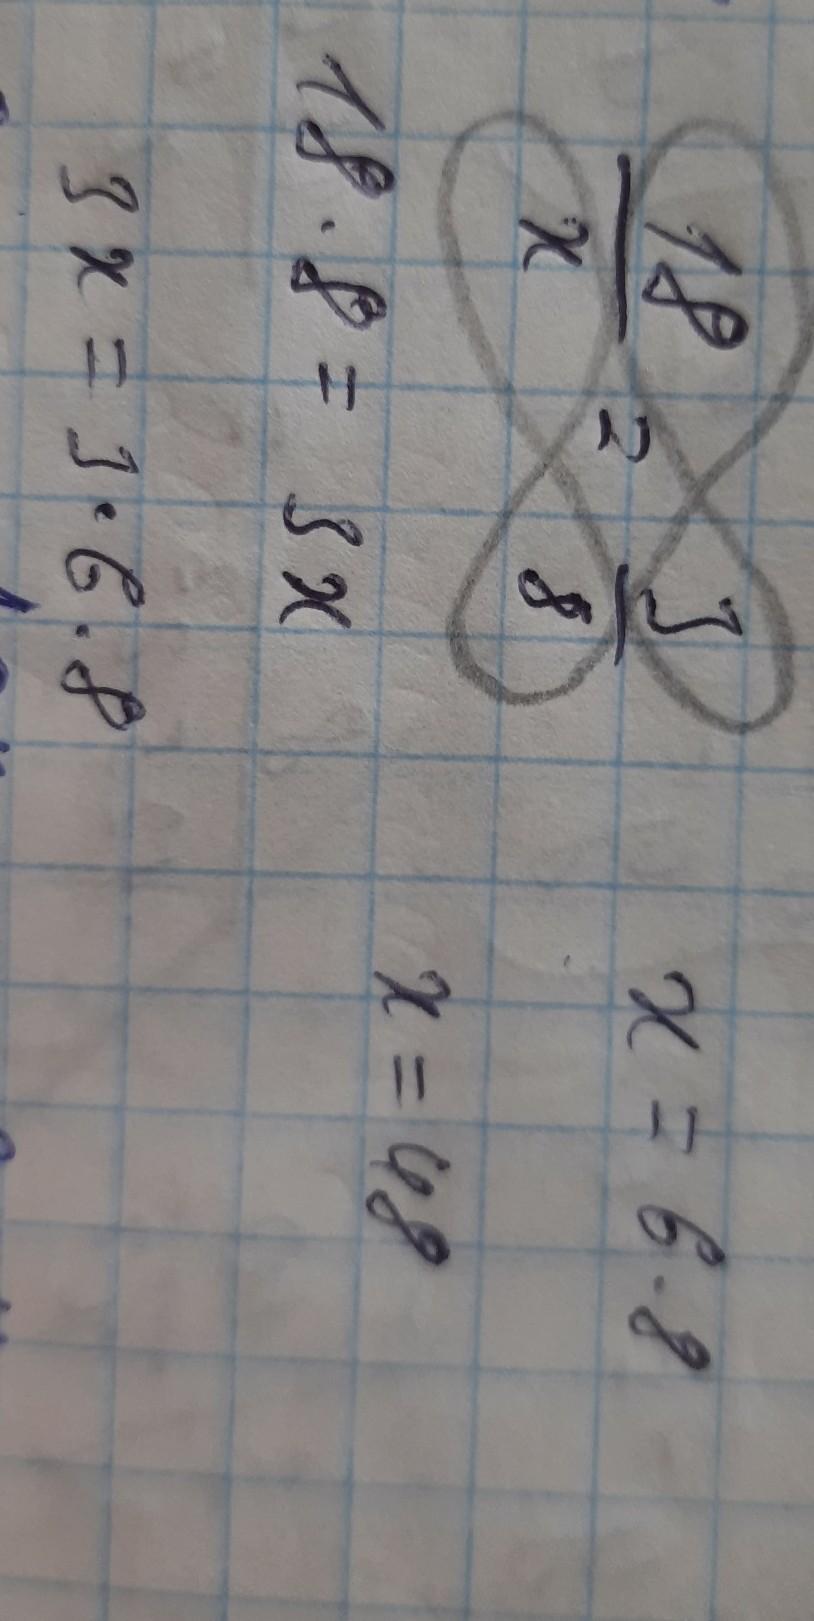 18/x = 3/8
18 · 8 = 3x
3x = 3 · 6 · 8
x = 6 · 8
x = 48